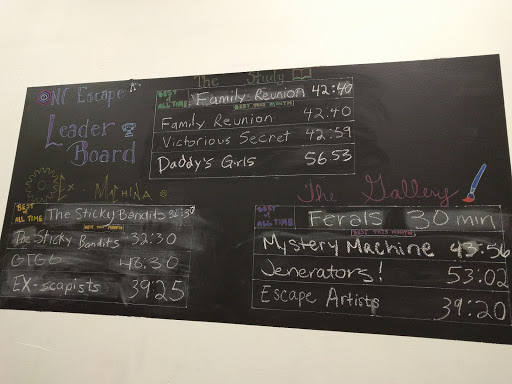 NC Escape
Leader
Board
The Study
BEST OF ALL TIME Family Reunion 42:40
BEST THIS MONTH
Family Reunion 42:40
Victorious Secret 42:59
Daddy's Girls 56:53
Ex Machina
BEST OF ALL TIME The Sticky Bandits 32:30
BEST THIS MONTH
The Sticky Bandits 32:30
GTGG 48:30
EX-scapists 39:25
The Gallery
BEST OF ALL TIME Ferals 30 min
BEST THIS MONTH
Mystery Machine 43:56
Jenerators! 53:02
Escape Artists 39:20